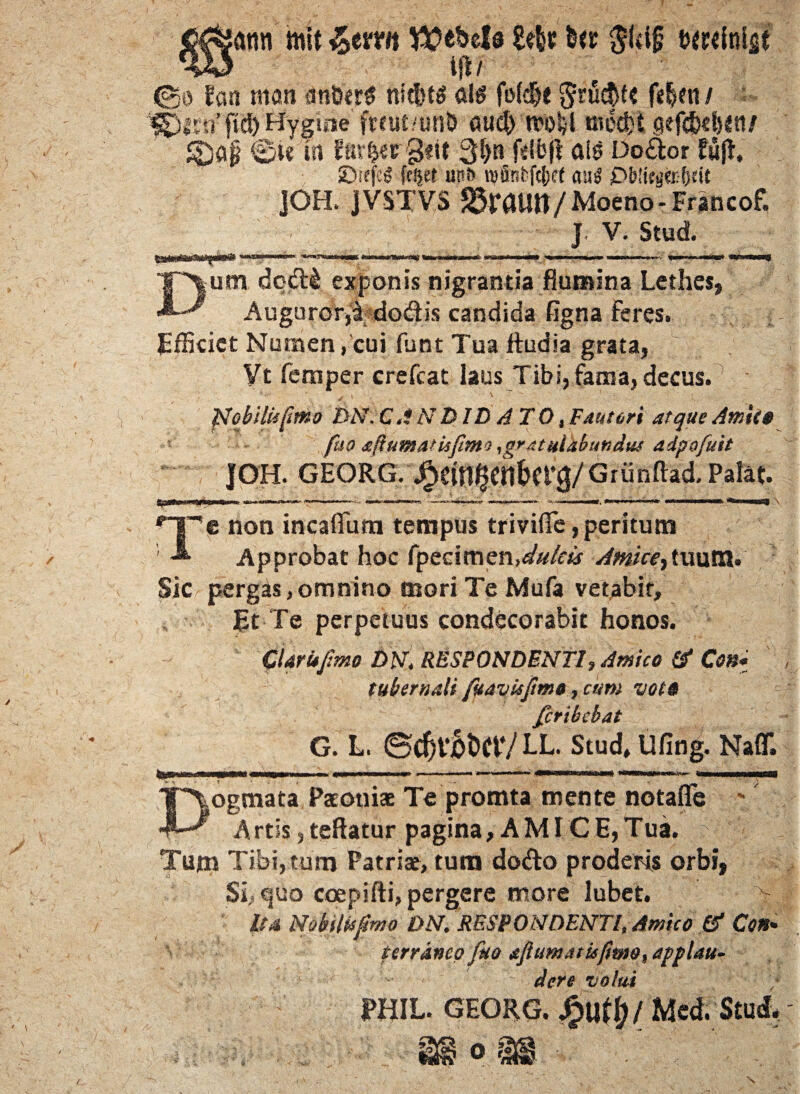 Wann mit Herrn Wedels Lehr der Fleiß vereinigt
ist/
So kan man anders nichts als solche Früchte sehen/
Hygiæe freut/und auch wohl möcht geschehen/
Daß Sie in kurtzer Zeit Ihn selbst als Doctor küst.
Dieses setzet und wünschet aus Obliegenheit
JOH. JVSTVS Braun/ Moeno-Francof.
J. V. Stud.
Dum doctè exponis nigrantia flumina Lethes,
Auguror,à doctis candida signa feres.
Efficiet Numen, cui sunt Tua studia grata,
Vt semper crescat laus Tibi, fama, decus.
Nobilissimo DN. CANDIDATO, Fautori atque Amico
suo æstumatissimo, gratulabundus adposuit
JOH. GEORG. Heintzenberg/ Grünstad. Palat.
Te non incassum tempus trivisse, peritum
Approbat hoc specimen, dulcis Amice, tuum.
Sic pergas, omnino mori Te Musa vetabit,
Et Te perpetuus condecorabit honos.
Clarissimo DN. RESPONDENTI, Amico & Con-
tubernali suavissimo, cum voto
scribebat
G. L. Schröder/ LL. Stud. Using. Nass.
Dogmata Pæoniæ Te promta mente notasse
Artis, testatur pagina, AMICE, Tua.
Tum Tibi, tum Patriæ, tum docto proderis orbi,
Si, quo cœpisti, pergere more lubet.
Ita Nobilissimo DN. RESPONDENTI, Amico & Con-
terràneo suo æstumatissimo, applau-
dere volui
PHIL. GEORG. Huth/ Med. Stud.